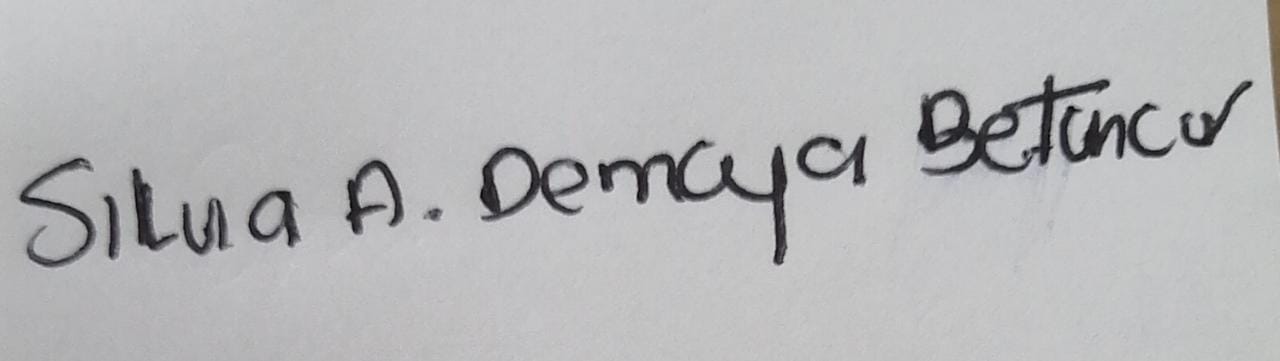 Silvia A. Demaya Betancur